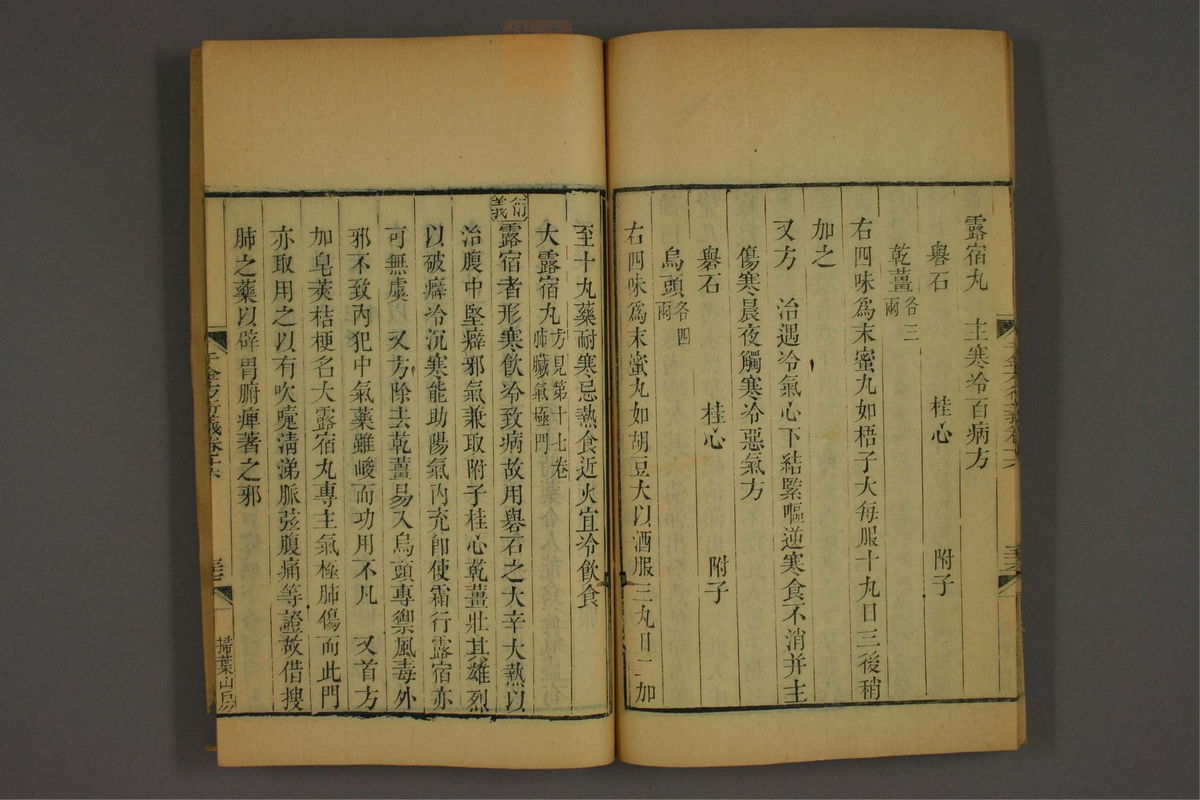 露宿丸　主寒冷百病方
礜石　桂心　附子
乾薑各三兩
右四味爲末蜜丸如梧子大每服十丸日三後稍
加之
又方　治遇冷氣心下結緊嘔逆寒食不消并主
傷寒晨夜觸寒冷惡氣方
礜石　桂心　附子
烏頭各四兩
右四味爲末蜜丸如胡豆大以酒服三丸日二加
至十丸藥耐寒忌熱食近火宜冷飲食
大露宿丸方見第十七卷肺臟氣極門
衍義露宿者形寒飲冷致病故用礜石之大辛大熱以
治腹中堅癖邪氣兼取附子桂心乾薑壯其雄烈
以破癖冷沉寒能助陽氣內充卽使霜行露宿亦
可無虞　又方除去乾薑易入烏頭專禦風毒外
邪不致內犯中氣藥雖峻而功用不凡　又首方
加皂莢桔梗名大露宿丸專主氣極肺傷而此門
亦取用之以有吹嚏清涕脈弦腹痛等證故借搜
肺之藥以辟胃腑痺著之邪
千金方衍義卷十六
掃葉山房